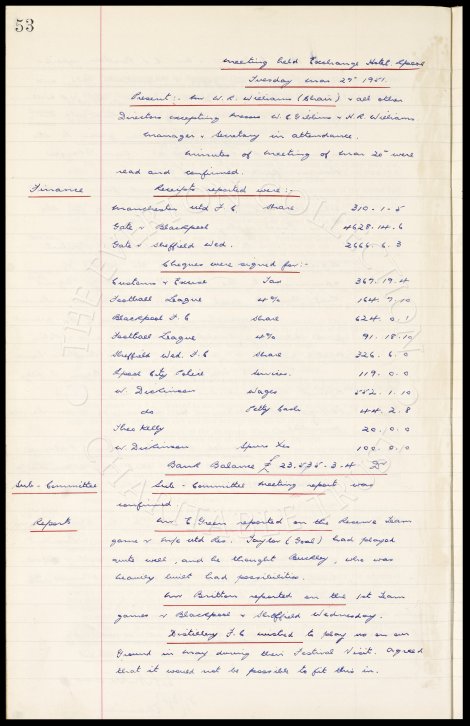 53
Meeting held Exchange Hotel Lpool
Tuesday Mar 27th 1951.
Present:- Mr W.R. Williams (Chair) & all other
Directors excepting Messrs W.C. Gibbins & H.R. Williams
Manager & Secretary in attendance.
Minutes of meeting of Mar 20th were
read and confirmed.
Finance Receipts reported were:-
Manchester Utd F.C. Share 310.1.5
Gate v Blackpool 4628.14.6
Gate v Sheffield Wed. 2666.6.3
Cheques were signed for:-
Customs & Excise Tax 367.19.4
Football League 4% 164.7.10
Blackpool F.C. Share 624.0.1
Football League 4% 91.18.10
Sheffield Wed. F.C. Share 326.6.0
Lpool City Police Services. 119.0.0
W. Dickinson Wages 552.1.10
do Petty Cash 44.2.8
Theo Kelly 20.0.0
W. Dickinson 100.0.0
Bank Balance £ 23,535.3.4 Dr
Sub-Committee Sub-Committee meeting report was
confirmed
Reports Mr C. Green reported on the Reserve Team
game v M/c Utd Res. Taylor (Goal) had played
quite well, and he thought Buckley, who was
heavily built had possibilities.
Mr Britton reported on the 1st Team
games v Blackpool & Sheffield Wednesday.
Distillery F.C. wished to play us on our
Ground in May during their Festival Visit. Agreed
that it would not be possible to fit this in.